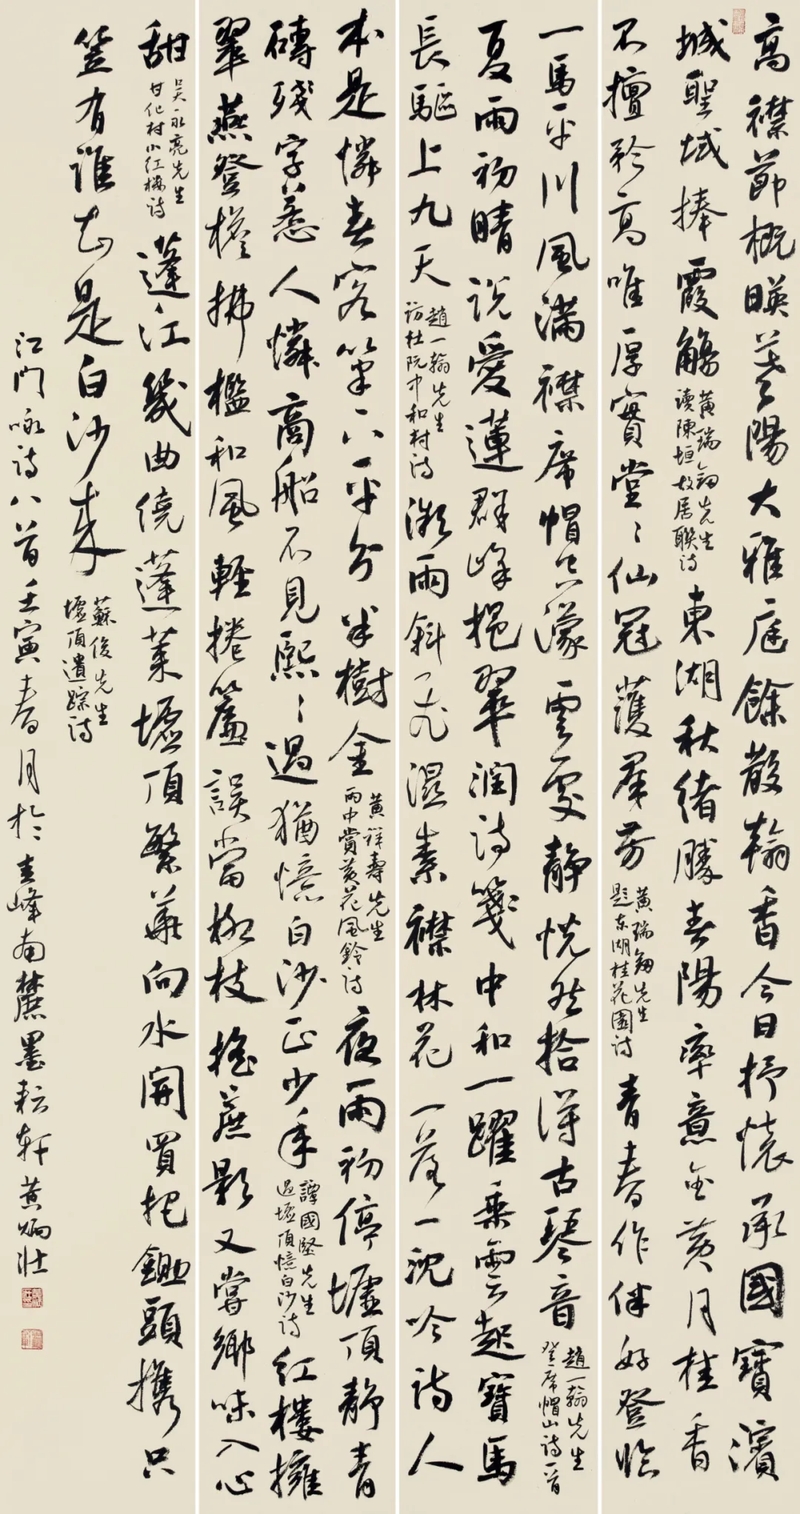 高襟節概暎陽大雅庭餘散翰香今日抒懷承國寶濱
城聖域捧霞觴
黃瑞翎先生
讀陳垣故居聯詩
東湖秋緒勝春陽率意金黃月桂香
不擅矜高唯厚實堂〻仙冠護羣芳
黃瑞翎先生
題東湖桂花園詩
青春作伴好登臨
一馬平川風滿襟席帽空濛雲更靜恍然拾得古琴音
趙一翰先生
登席帽山詩一首
夏雨初晴說愛蓮群峰挹翠潤詩箋中和一躍乘雲起寶馬
長驅上九天
趙一翰先生
訪杜阮中和村詩
漸雨斜飛濕素襟林花一落一沉吟詩人
本是憐春客筆下平分半樹金
黃祥壽先生
雨中賞黃花風鈴詩
夜雨初停墟頂靜青
磚殘字惹人憐商船不見熙〻過猶憶白沙正少年
譚國堅先生
過墟頂憶白沙詩
紅樓擁
翠燕登樓拂檻和風輕捲簾誤當柳枝搖蔗影又嘗鄉味入心
甜
吴永亮先生
甘化村小紅樓詩
蓬江幾曲繞蓬萊墟頂繁華向水開買把鋤頭攜只
笠有誰知是白沙来
蘇俊先生
墟頂遺踪詩
江門咏詩八首壬寅春月於圭峰南麓墨耘軒黃炳壯